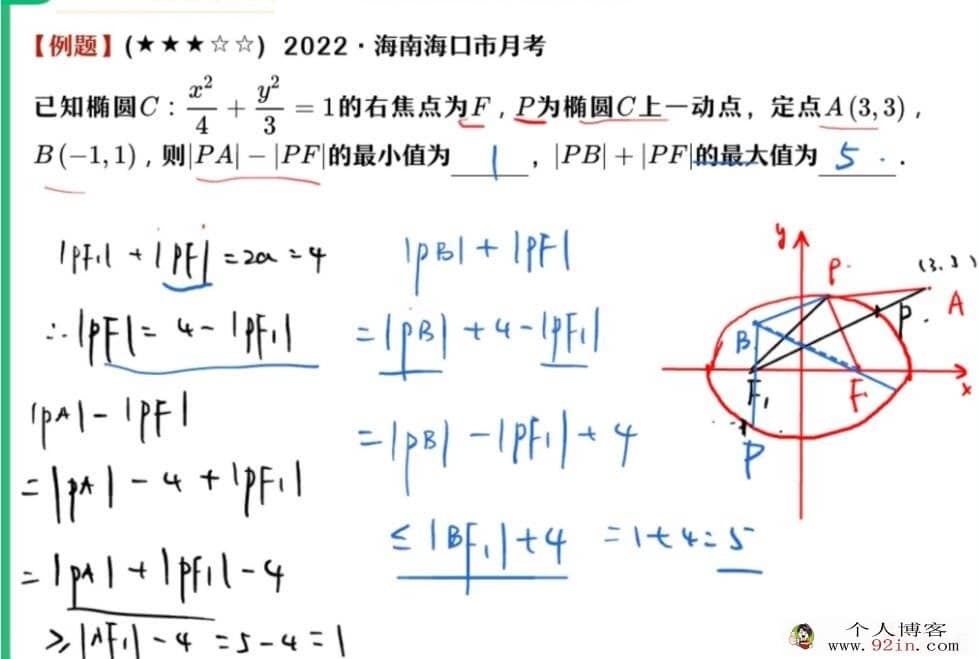 【例题】(★★★☆☆) 2022·海南海口市月考
已知椭圆C：x²/4 + y²/3 = 1的右焦点为F，P为椭圆C上一动点，定点A(3,3)，
B(−1,1)，则|PA|−|PF|的最小值为 1 ，|PB|+|PF|的最大值为 5 .
|PF₁| + |PF| = 2a = 4
∴ |PF| = 4 − |PF₁|
|PA| − |PF|
= |PA| − 4 + |PF₁|
= |PA| + |PF₁| − 4
≥ |AF₁| − 4 = 5 − 4 = 1
|PB| + |PF|
= |PB| + 4 − |PF₁|
= |PB| − |PF₁| + 4
≤ |BF₁| + 4 = 1 + 4 = 5
y
P
(3.3)
A
P
B
F₁
F
x
P
个人博客
www.92in.com